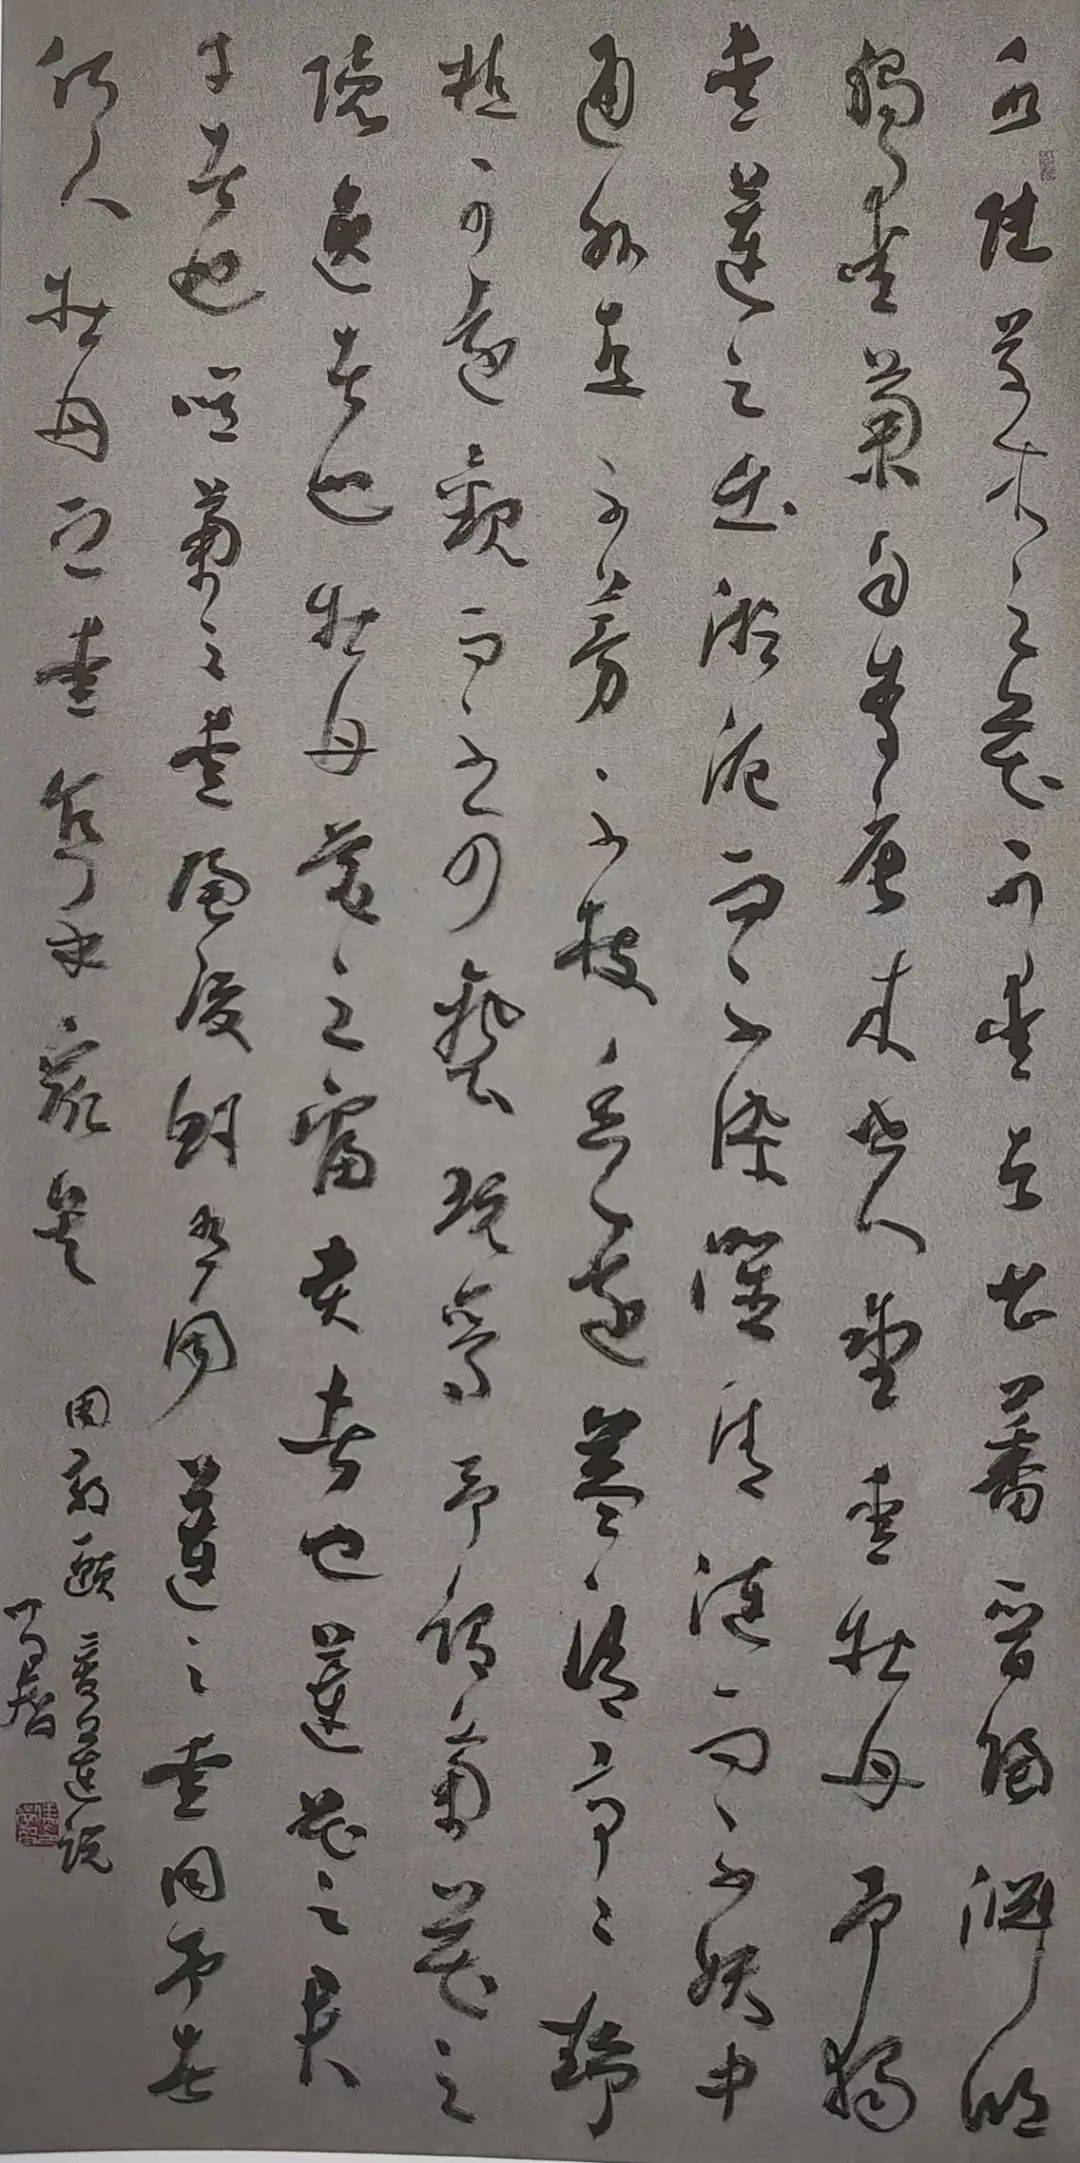 水陸草木之花可愛者甚蕃晉陶淵明
獨愛菊自李唐來世人盛愛牡丹予獨
愛蓮之出淤泥而不染濯清漣而不妖中
通外直不蔓不枝香遠益清亭〻靜
植可遠觀而不可褻玩焉予謂菊花之
隱逸者也牡丹花之富貴者也蓮花之君
子者也噫菊之愛陶後鮮有聞蓮之愛同予者
何人牡丹之愛宜乎眾矣
周敦頤愛蓮說